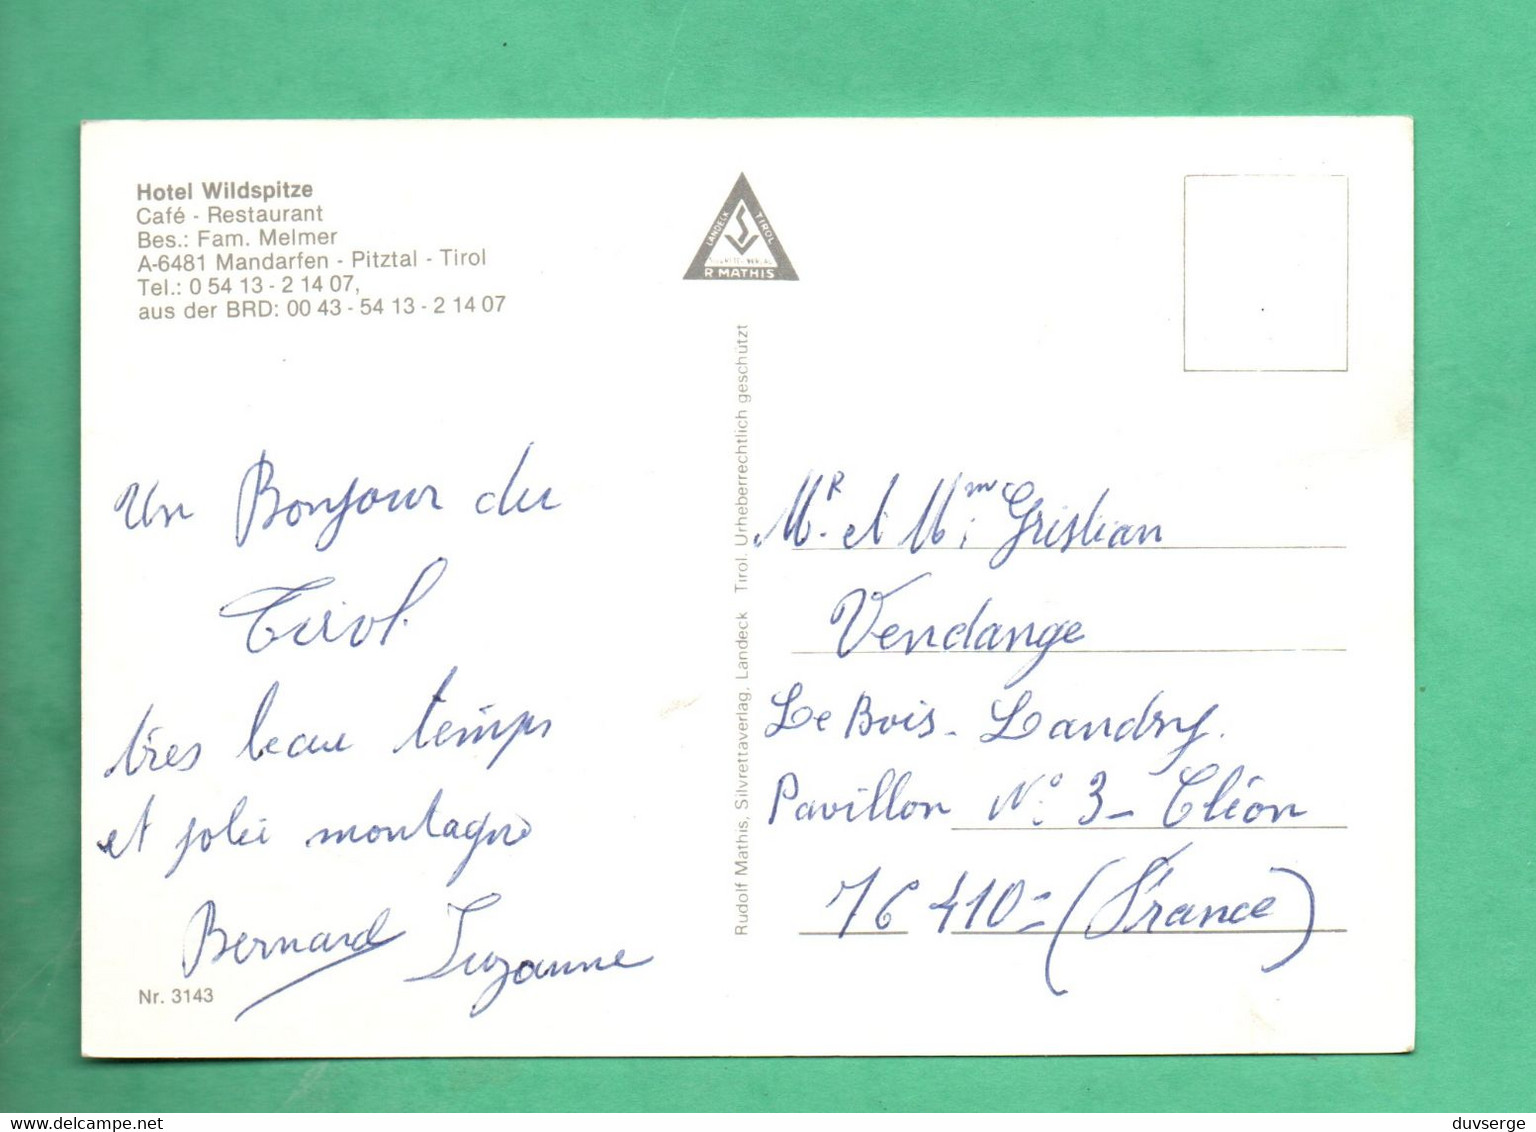 Hotel Wildspitze
Café - Restaurant
Bes.: Fam. Melmer
A-6481 Mandarfen - Pitztal - Tirol
Tel.: 0 54 13 - 2 14 07,
aus der BRD: 00 43 - 54 13 - 2 14 07
LANDECK TIROL
R MATHIS
Rudolf Mathis, Silvrettaverlag, Landeck Tirol. Urheberrechtlich geschützt
Un Bonjour du
Tirol.
très beau temps
et jolie montagne
Bernard Suzanne
Nr. 3143
Mr. et Mm
Vendange
Le Bois - Landry.
Pavillon N° 3 - Cléon
76410 = (France)
delcampe.net
duvserge